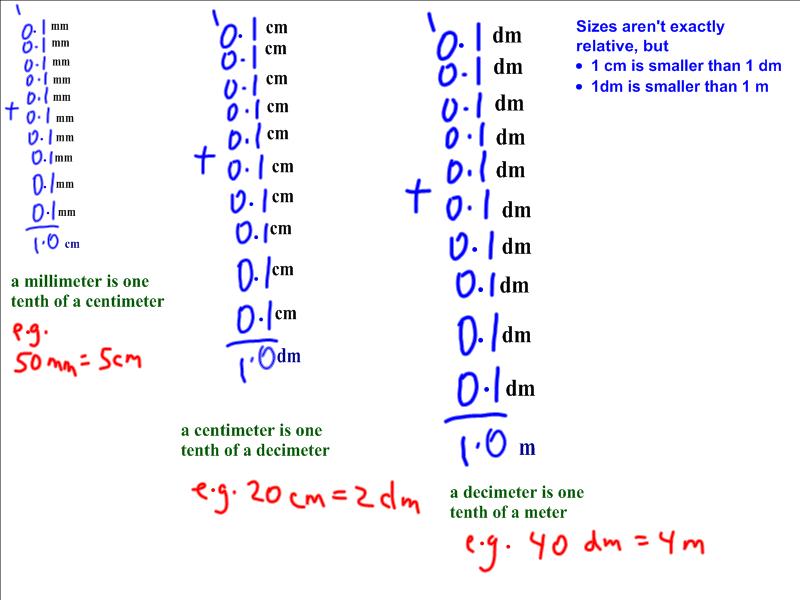 0.1 mm
0.1 mm
0.1 mm
0.1 mm
0.1 mm
+ 0.1 mm
0.1 mm
0.1 mm
0.1 mm
0.1 mm
1.0 cm
a millimeter is one
tenth of a centimeter
e.g.
50 mm = 5cm
0.1 cm
0.1 cm
0.1 cm
0.1 cm
0.1 cm
+ 0.1 cm
0.1 cm
0.1 cm
0.1 cm
0.1 cm
1.0 dm
a centimeter is one
tenth of a decimeter
e.g. 20 cm = 2 dm
0.1 dm
0.1 dm
0.1 dm
0.1 dm
0.1 dm
+ 0.1 dm
0.1 dm
0.1 dm
0.1 dm
0.1 dm
1.0 m
a decimeter is one
tenth of a meter
e.g. 40 dm = 4 m
Sizes aren't exactly
relative, but
• 1 cm is smaller than 1 dm
• 1dm is smaller than 1 m